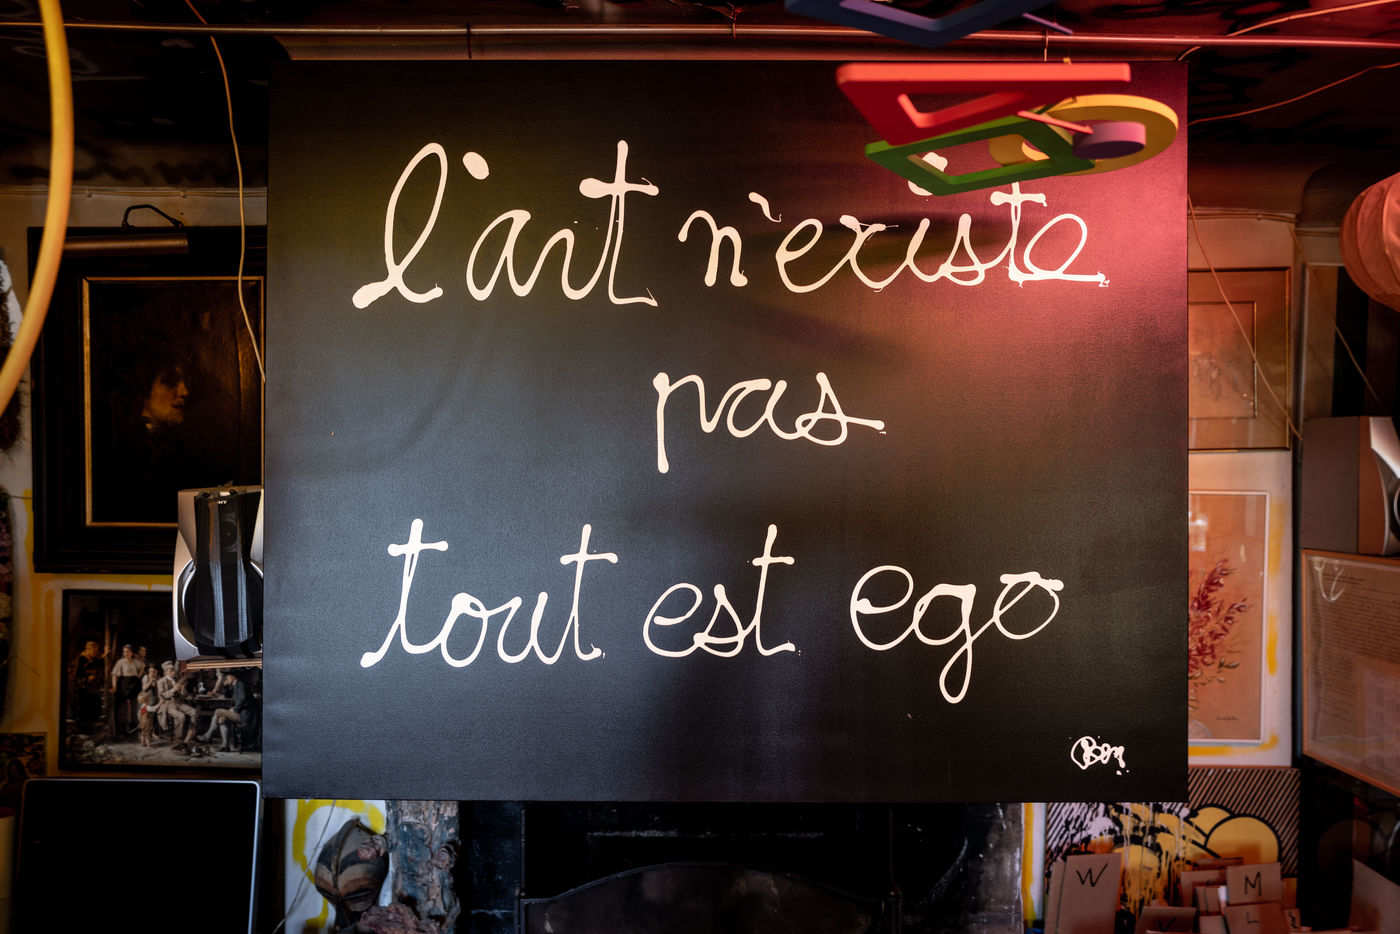 l'art n'existe
pas
tout est ego
Ben
SONY
W
M
L